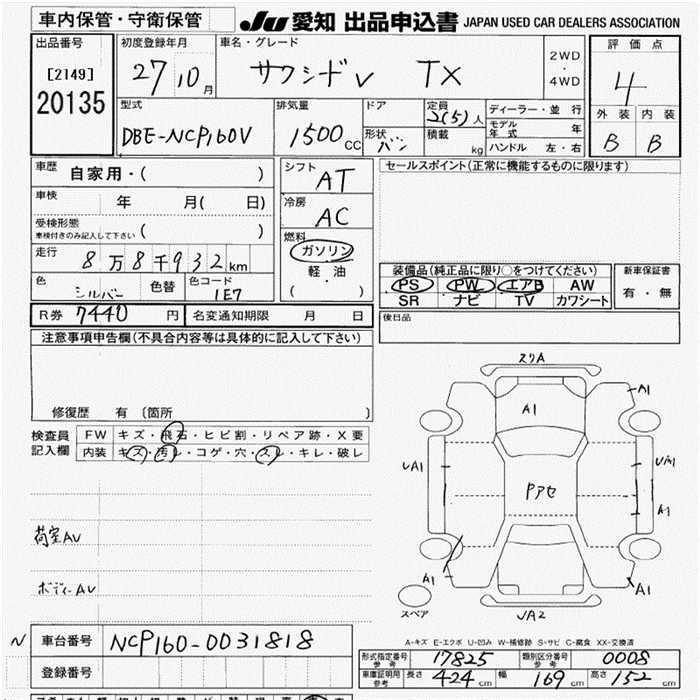 車内保管・守衛保管
JU 愛知 出品申込書 JAPAN USED CAR DEALERS ASSOCIATION
出品番号
[2149]
20135
初度登録年月
27 10 月
車名・グレード
サクシードV TX
2WD
・
4WD
評価点
4
外装 内装
B B
型式
DBE-NCP160V
排気量
1500 CC
ドア
形状 バン
定員
2(5) 人
積載
kg
ディーラー・並行
モデル年式 年
ハンドル 左・右
車歴
自家用・( )
車検
年 月( 日)
受検形態
車検付きのみ記入して下さい ( )
走行
8万8千932km
色
シルバー 色替
色コード
1E7
シフト
AT
冷房
AC
燃料
ガソリン
軽・油
( )
セールスポイント(正常に機能するものに限ります)
装備品(純正品に限り○をつけてください)
PS PW エアB AW
SR ナビ TV カワシート
新車保証書
有・無
後日品
R券 7440 円
名変通知期限 月 日
注意事項申告欄(不具合内容等は具体的に記入して下さい)
修復歴 有 〔箇所 〕
検査員
記入欄
FW キズ・飛石・ヒビ割・リペア跡・X要
内装 キズ・汚レ・コゲ・穴・スレ・キレ・破レ
荷室AV
ボディーAV
スリA
A1
A1
UA1
Pアセ
A1
A1
A1
スペア
UA2
A-キズ E-エクボ U-凹み W-補修跡 S-サビ C-腐食 XX-交換済
N
車台番号 NCP160-0031818
登録番号
形式指定番号 参考 17825
類別区分番号 参考 0008
車庫証明用 参考 長さ 424 cm 幅 169 cm 高さ 152 cm